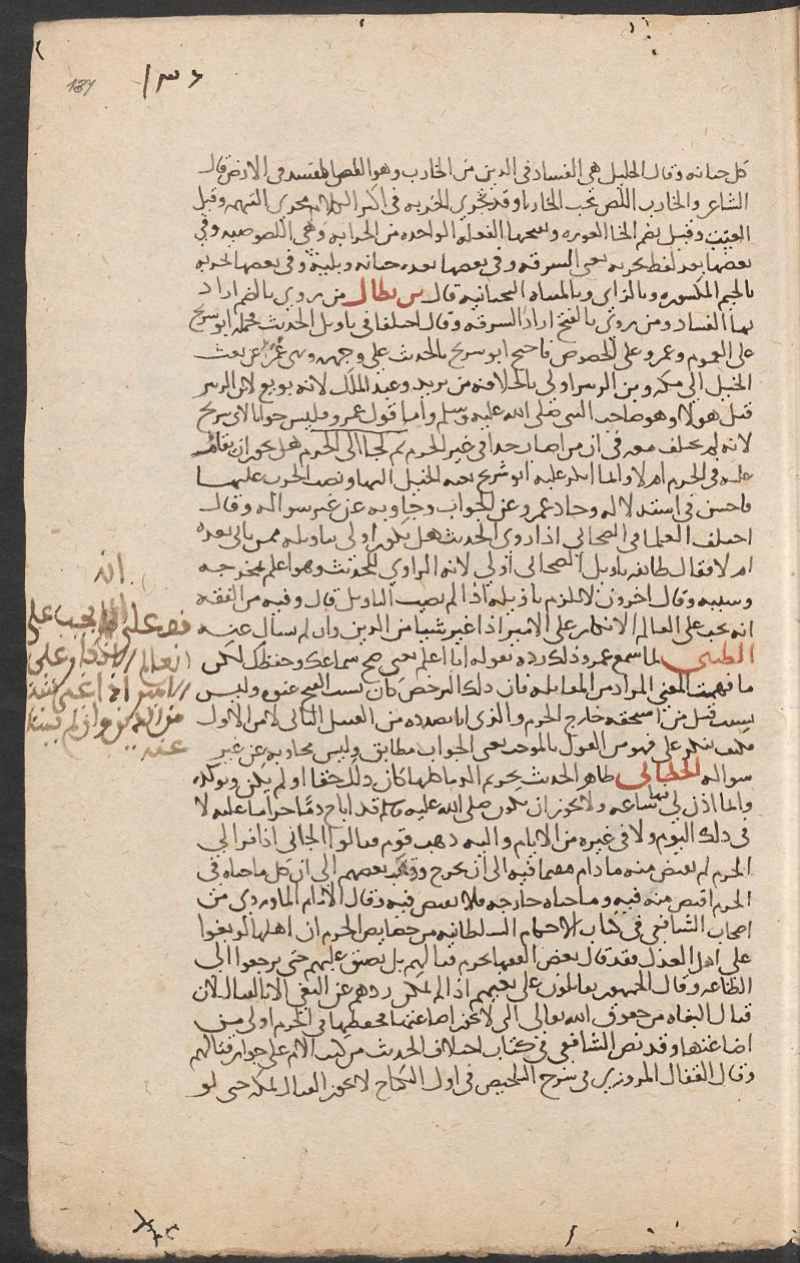 137 ١٣٦
كل خيانة وقال الخليل هي الفساد في الدين من الخارب وهو اللص المفسد في الارض قال
الشاعر والخارب اللص يحب الخاربا وقد تجري الخربة في اكثر الكلام مجرى التهمة وقيل
العيب وقيل بضم الخا العورة وبفتحها الفعلة الواحدة من الخرابة وهي اللصوصية وفي
بعضها بعد لفظ بخربة يعني السرقة وفي بعضها بعده خيانة وبلية وفي بعضها الخزية
بالجيم المكسورة وبالزاي وبالمثناة التحتانية قال بن بطال من روى بالضم اراد
بها الفساد ومن روى بالفتح اراد السرقة وقال اختلفا في تاويل الحديث فحمله ابو شريح
على العموم وعمرو على الخصوص فاحتج ابو شريح بالحديث على وجهه ونهى عمرا عن بعث
الخيل الى مكة وبن الزبير اولى بالخلافة من يزيد وعبد الملك لانه بويع لابن الزبير
قبل هولا وهو صاحب النبي صلى الله عليه وسلم واما قول عمرو فليس جوابا لابي شريح
لانه لم يختلف معه في ان من اصاب حدا في غير الحرم ثم لجا الى الحرم هل يجوز ان يقام
عليه في الحرم ام لا وانما انكر عليه ابو شريح بعثه الخيل اليها ونصب الحرب عليها
فاحسن في استدلاله وحاد عمرو عن الجواب وجاوبه عن غير سواله وقال
اختلف العلما في الصحابي اذا روى الحديث هل يكون اولى بتاويله ممن ياتي بعده
ام لا فقال طائفة تاويل الصحابي اولى لانه الراوي للحديث وهو اعلم بمخرجه
وسببه وقال اخرون لا يلزم تاويله اذا لم يصب التاويل قال وفيه من الفقه
انه يجب على العالم الانكار على الامير اذا غير شيا من الدين وان لم يسال عنه
الطيبي لما سمع عمرو ذلك رده بقوله انا اعلم يعني صح سماعك وحفظك لكن
ما فهمت المعنى المراد من المقاتلة فان ذلك الترخص كان بسبب الفتح عنوة وليس
بسبب قتل من استحقه خارج الحرم والذي انا بصدده من القبيل الثاني لا من الاول
فكيف تنكر علي فهو من القول بالموجب يعني الجواب مطابق وليس مجاوبة عن غير
سواله الخطابي ظاهر الحديث تحريم الدما كلها كان ذلك حقا او لم يكن ويوكده
وانما اذن لي فيها ساعة ولا يجوز ان يكون صلى الله عليه وسلم قد اباح دما حراما عليه لا
في ذلك اليوم ولا في غيره من الايام واليه ذهب قوم فقالوا الجاني اذا فر الى
الحرم لم يقتص منه ما دام مقيما فيه الى ان يخرج وذهب بعضهم الى ان كل ما جناه في
الحرم اقتص منه فيه وما جناه خارجه فلا يقتص فيه وقال الامام الماوردي من
اصحاب الشافعي في كتاب الاحكام السلطانية من خصايص الحرم ان اهلها لو بغوا
على اهل العدل فقد قال بعض الفقها يحرم قتالهم بل يضيق عليهم حتى يرجعوا الى
الطاعة وقال الجمهور يقاتلون على بغيهم اذا لم يمكن ردهم عن البغي الا بالقتال لان
قتال البغاة من حقوق الله تعالى التي لا يجوز اضاعتها فحفظها في الحرم اولى من
اضاعتها وقد نص الشافعي في كتاب اختلاف الحديث من كتب الام على جواز قتالهم
وقال القفال المروزي في شرح التلخيص في اول النكاح لا يجوز القتال بمكة حتى لو
انه
يجب على
العالم الانكار على
الامير اذا غير شيئا
من الدين وان لم يسئل
عنه